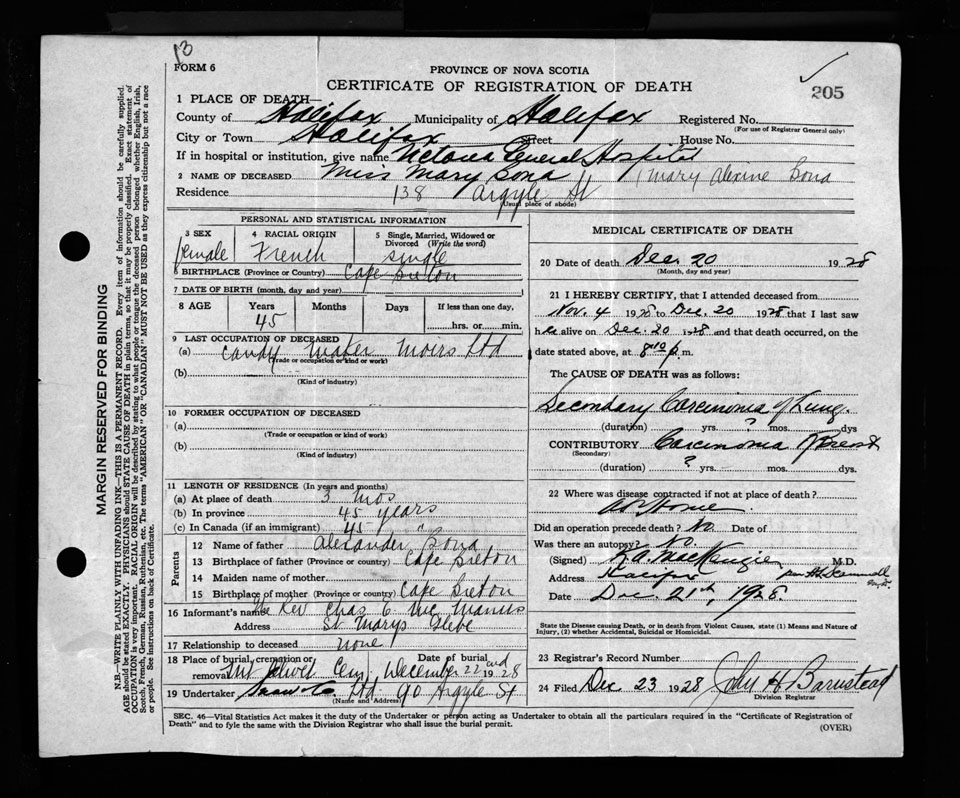 13
FORM 6
PROVINCE OF NOVA SCOTIA
CERTIFICATE OF REGISTRATION OF DEATH
205
1 PLACE OF DEATH—
County of Halifax Municipality of Halifax Registered No.
(For use of Registrar General only)
City or Town Halifax Street House No.
If in hospital or institution, give name Victoria General Hospital
2 NAME OF DECEASED Miss Mary Bona (Mary Alexine Bona
Residence 138 Argyle St
(Usual place of abode)
MARGIN RESERVED FOR BINDING
N.B.—WRITE PLAINLY WITH UNFADING INK—THIS IS A PERMANENT RECORD. Every item of information should be carefully supplied.
AGE should be stated EXACTLY. PHYSICIANS should STATE CAUSE OF DEATH in plain terms, so that it may be properly classified. Exact statement of
OCCUPATION is very important. RACIAL ORIGIN will be described by stating to what people or tongue the deceased person belonged whether English, Irish,
Scotch, French, German, Russian, Ruthenian, etc. The terms "AMERICAN" or "CANADIAN" MUST NOT BE USED as they express citizenship but not a race
or people. See instructions on back of Certificate.
PERSONAL AND STATISTICAL INFORMATION
3 SEX 4 RACIAL ORIGIN 5 Single, Married, Widowed or
Divorced (Write the word)
female French single
6 BIRTHPLACE (Province or Country) Cape Breton
7 DATE OF BIRTH (month, day and year)
8 AGE Years Months Days If less than one day,
45 hrs. or min.
9 LAST OCCUPATION OF DECEASED
(a) Candy Maker Moirs Ltd
(Trade or occupation or kind or work)
(b)
(Kind of industry)
10 FORMER OCCUPATION OF DECEASED
(a)
(Trade or occupation or kind or work)
(b)
(Kind of industry)
11 LENGTH OF RESIDENCE (In years and months)
(a) At place of death 3 mos
(b) In province 45 years
(c) In Canada (if an immigrant) 45 "
Parents
12 Name of father Alexander Bona
13 Birthplace of father (Province or country) Cape Breton
14 Maiden name of mother
15 Birthplace of mother (Province or country) Cape Breton
16 Informant's name The Rev Chas C. McManus
Address St Marys Glebe
17 Relationship to deceased none
18 Place of burial, cremation or Date of burial
removal Mt Olivet Cem December 22nd 1928
19 Undertaker Snow & Co Ltd 90 Argyle St
(Name and Address)
MEDICAL CERTIFICATE OF DEATH
20 Date of death Dec 20 1928
(Month, day and year)
21 I HEREBY CERTIFY, that I attended deceased from
Nov. 4 1928 to Dec. 20 1928 that I last saw
her alive on Dec. 20 1928 and that death occurred, on the
date stated above, at 8.10 p.m.
The CAUSE OF DEATH was as follows:
Secondary Carcinoma of Lung.
(duration) yrs. ? mos. dys
CONTRIBUTORY Carcinoma of Breast
(Secondary)
(duration) ? yrs. mos. dys.
22 Where was disease contracted if not at place of death?
At Home
Did an operation precede death? No Date of
Was there an autopsy? No.
(Signed) K.A. MacKenzie M.D.
Address Halifax
Date Dec. 21st, 1928.
State the Disease causing Death, or in death from Violent Causes, state (1) Means and Nature of
Injury, (2) whether Accidental, Suicidal or Homicidal.
23 Registrar's Record Number
24 Filed Dec 23 1928 John H Barnstead
Division Registrar
SEC. 46—Vital Statistics Act makes it the duty of the Undertaker or person acting as Undertaker to obtain all the particulars required in the "Certificate of Registration of
Death" and to fyle the same with the Division Registrar who shall issue the burial permit.
(OVER)